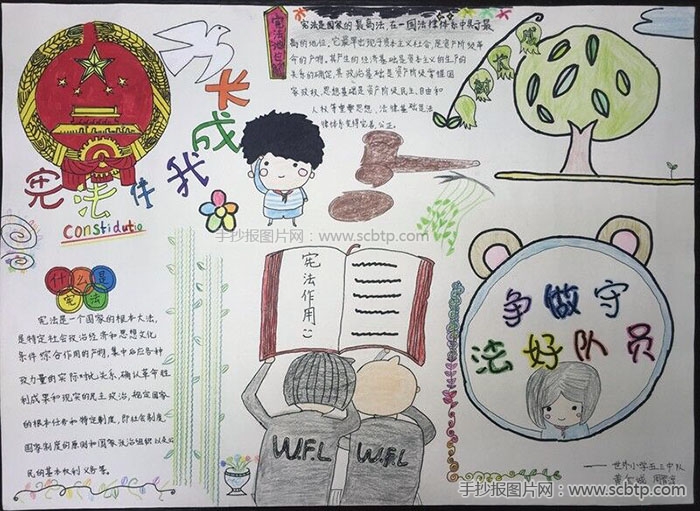 宪法的目的
宪法是国家的最高法,在一国法律体系中具于最
高的地位,它最早出现于资本主义社会,是资产阶级革
命的产物,其产生的经济基础是资本主义的生产
关系的确定,其政治基础是资产阶级掌握国
家政权,思想基础是资产阶级民主、自由和
人权等重要思想、法律基础是法
律体系变得完善,公正。
宪法伴我成长
constidutio
手抄报图片网:www.scbtp.com
什么是
宪法
宪法是一个国家的根本大法,
是特定社会政治经济和思想文化
条件综合作用的产物,集中反应各种
政力量的实际对比关系,确认革命胜
利成果和现实的民主政治,规定国家
的根本任务和特定制度,即社会制度、
国家制度的原则和国家政治组织以及公
民的基本权利义务等。
宪法作用:
W.F.L
W.F.L
争做守
法好队员
——世外小学五三中队
手抄报图片网:www.scbtp.com